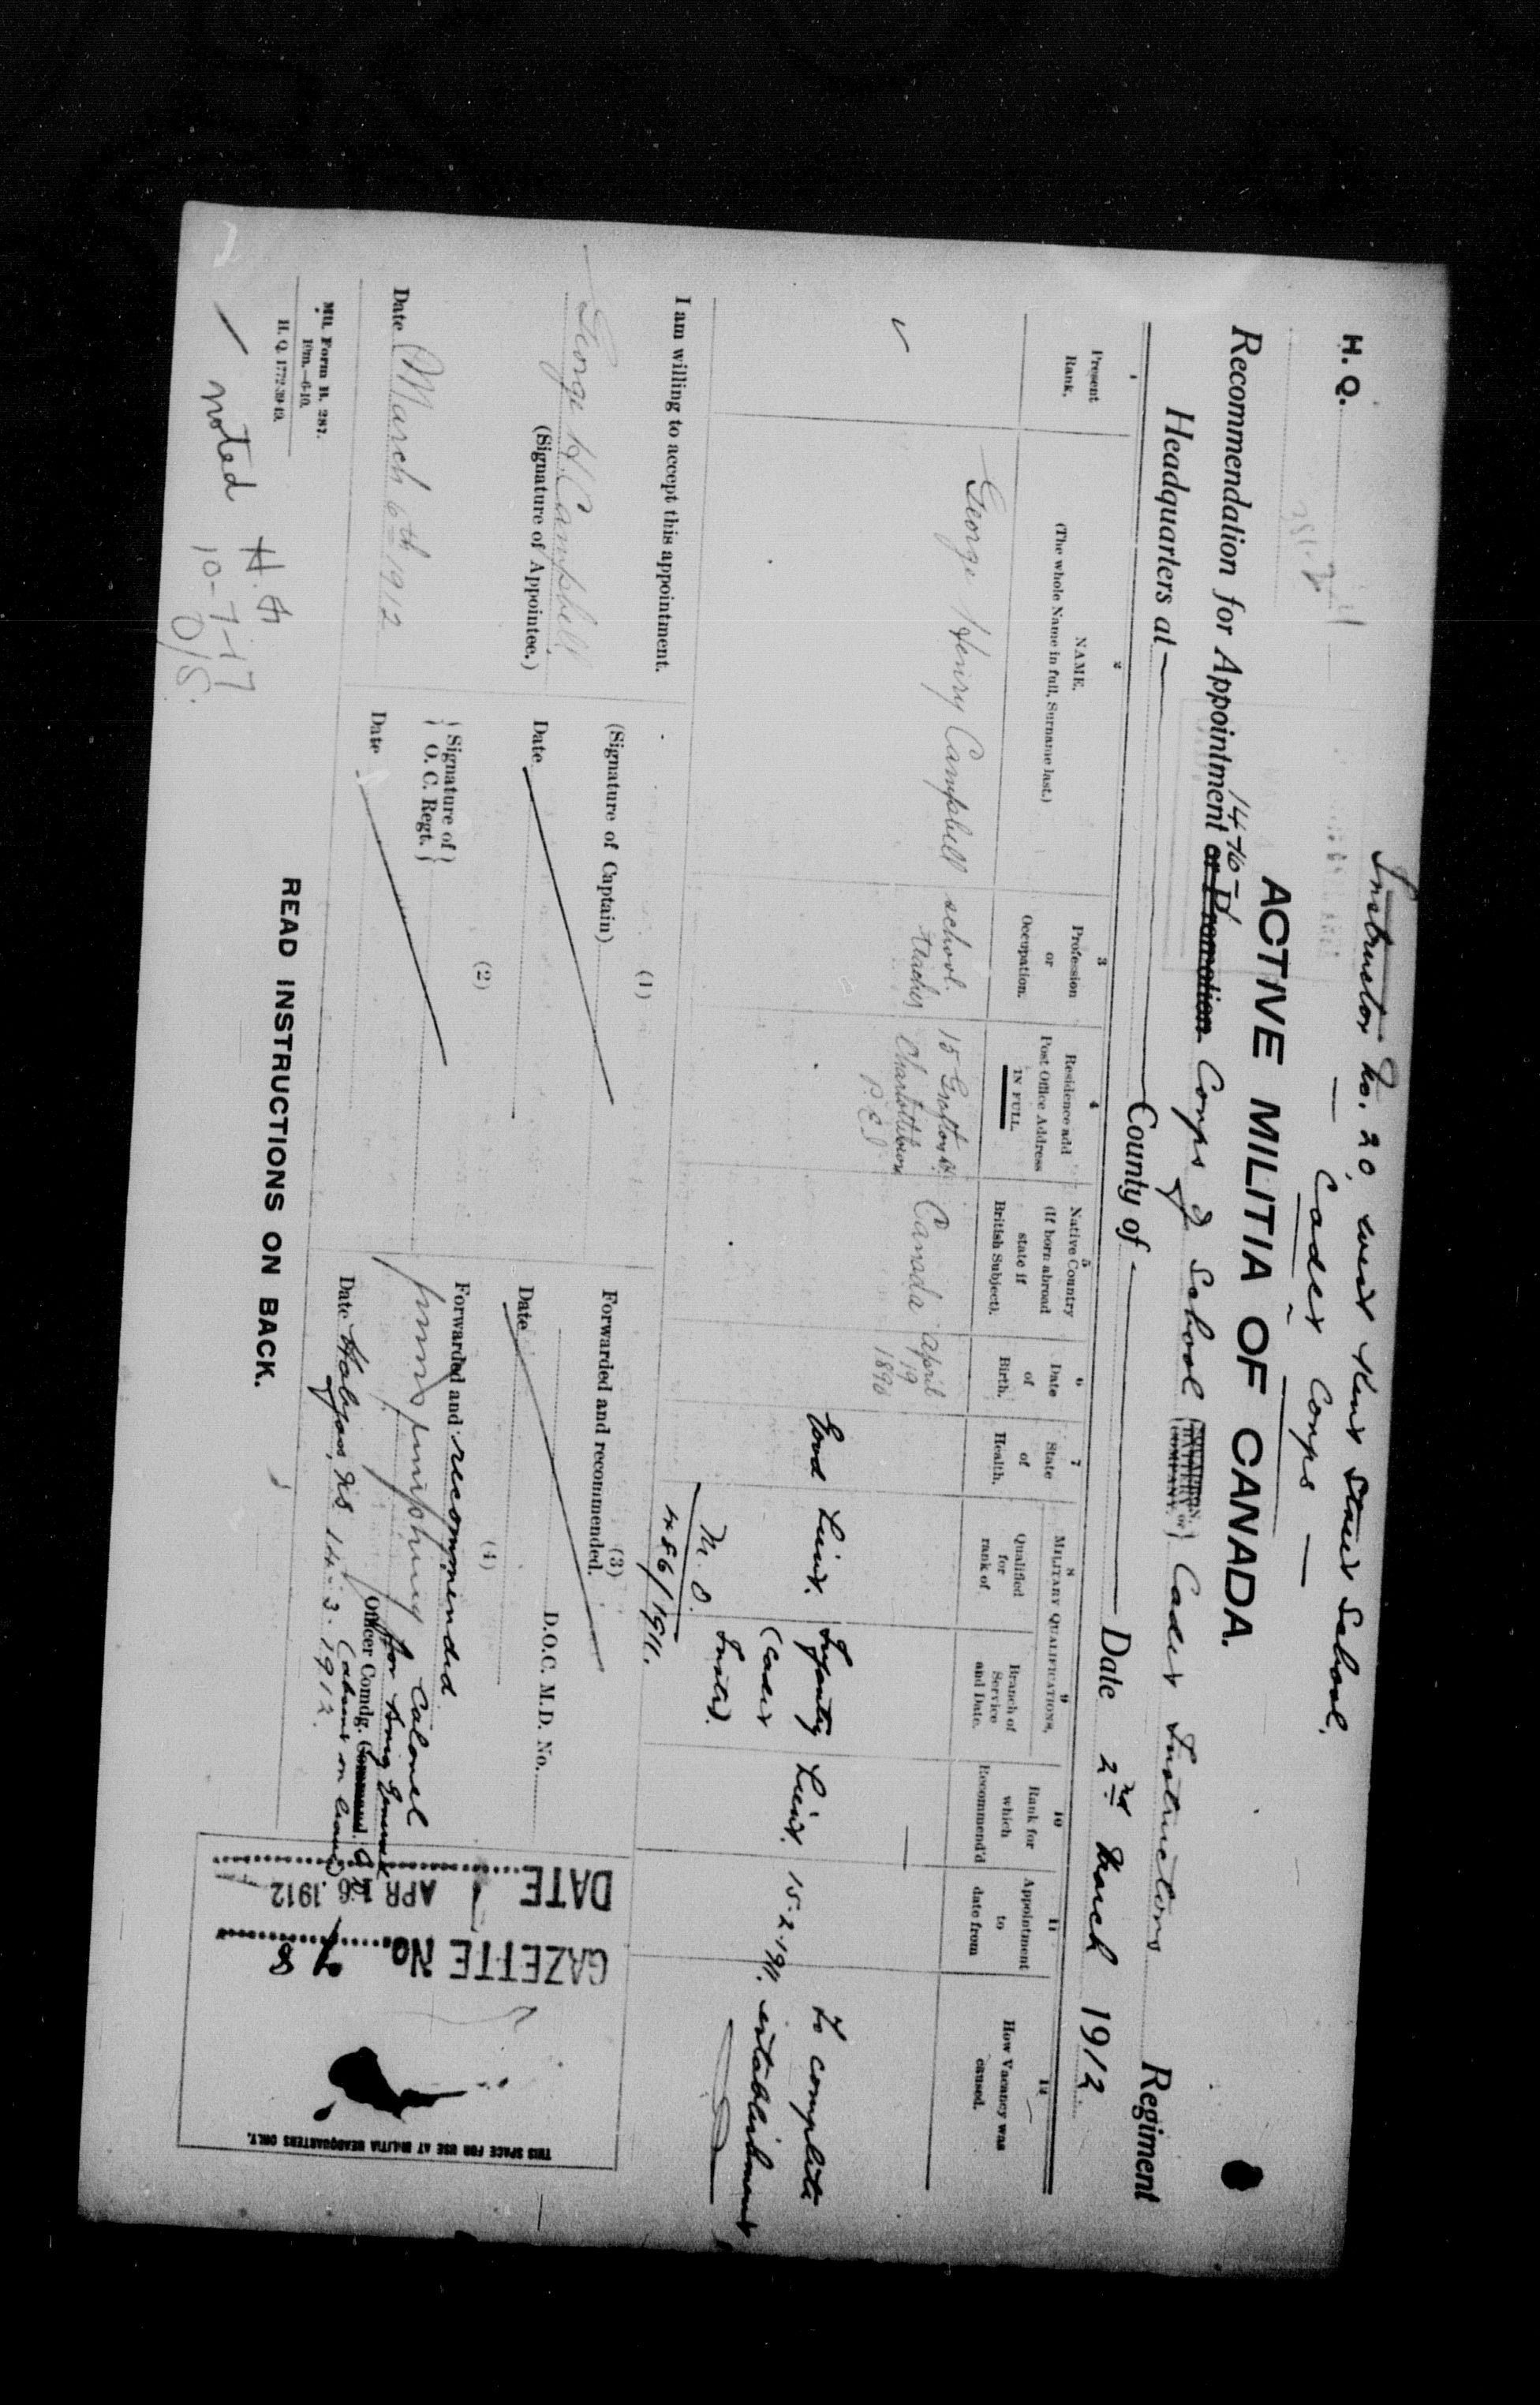 Instructor No. 20, West Kent Street School,
Cadet Corps —
H. Q.
ACTIVE MILITIA OF CANADA.
Recommendation for Appointment or Promotion Corps of School (SQUADRON, BATTERY or COMPANY) Cadet Instructors Regiment
Headquarters at — County of — Date 2nd March 1912
1
Present Rank.
2
NAME.
(The whole Name in full, Surname last.)
3
Profession or Occupation.
4
Residence add Post Office Address IN FULL.
5
Native Country (If born abroad state if British Subject).
6
Date of Birth.
7
State of Health.
MILITARY QUALIFICATIONS,
8
Qualified for rank of
9
Branch of Service and Date.
10
Rank for which Recommend'd
11
Appointment to date from
12
How Vacancy was caused.
George Henry Campbell
school teacher
15 Grafton St. Charlottetown P.E.I
Canada
April 19 1890
Good
Lieut.
Infantry (Cadet Instr).
M. O. 486/1911.
Lieut.
15-2-1911.
To complete establishment
I am willing to accept this appointment.
George H. Campbell
(Signature of Appointee.)
Date March 6th 1912
(1)
(Signature of Captain)
Date
(2)
{Signature of O. C. Regt.}
Date
(3)
Forwarded and recommended.
D.O.C. M.D. No.
Date
(4)
Forwarded and recommended
Colonel
for Brig General
Officer Comdg. Command.
(absent on leave)
Date Halifax, NS 14-3-1912.
DATE APR 6 1912
GAZETTE No. 98
THIS SPACE FOR USE AT MILITIA HEADQUARTERS ONLY.
Mil. Form B. 287.
10m.—6-10.
H. Q. 1772-39-49.
READ INSTRUCTIONS ON BACK.
noted
10-7-17
O/S.